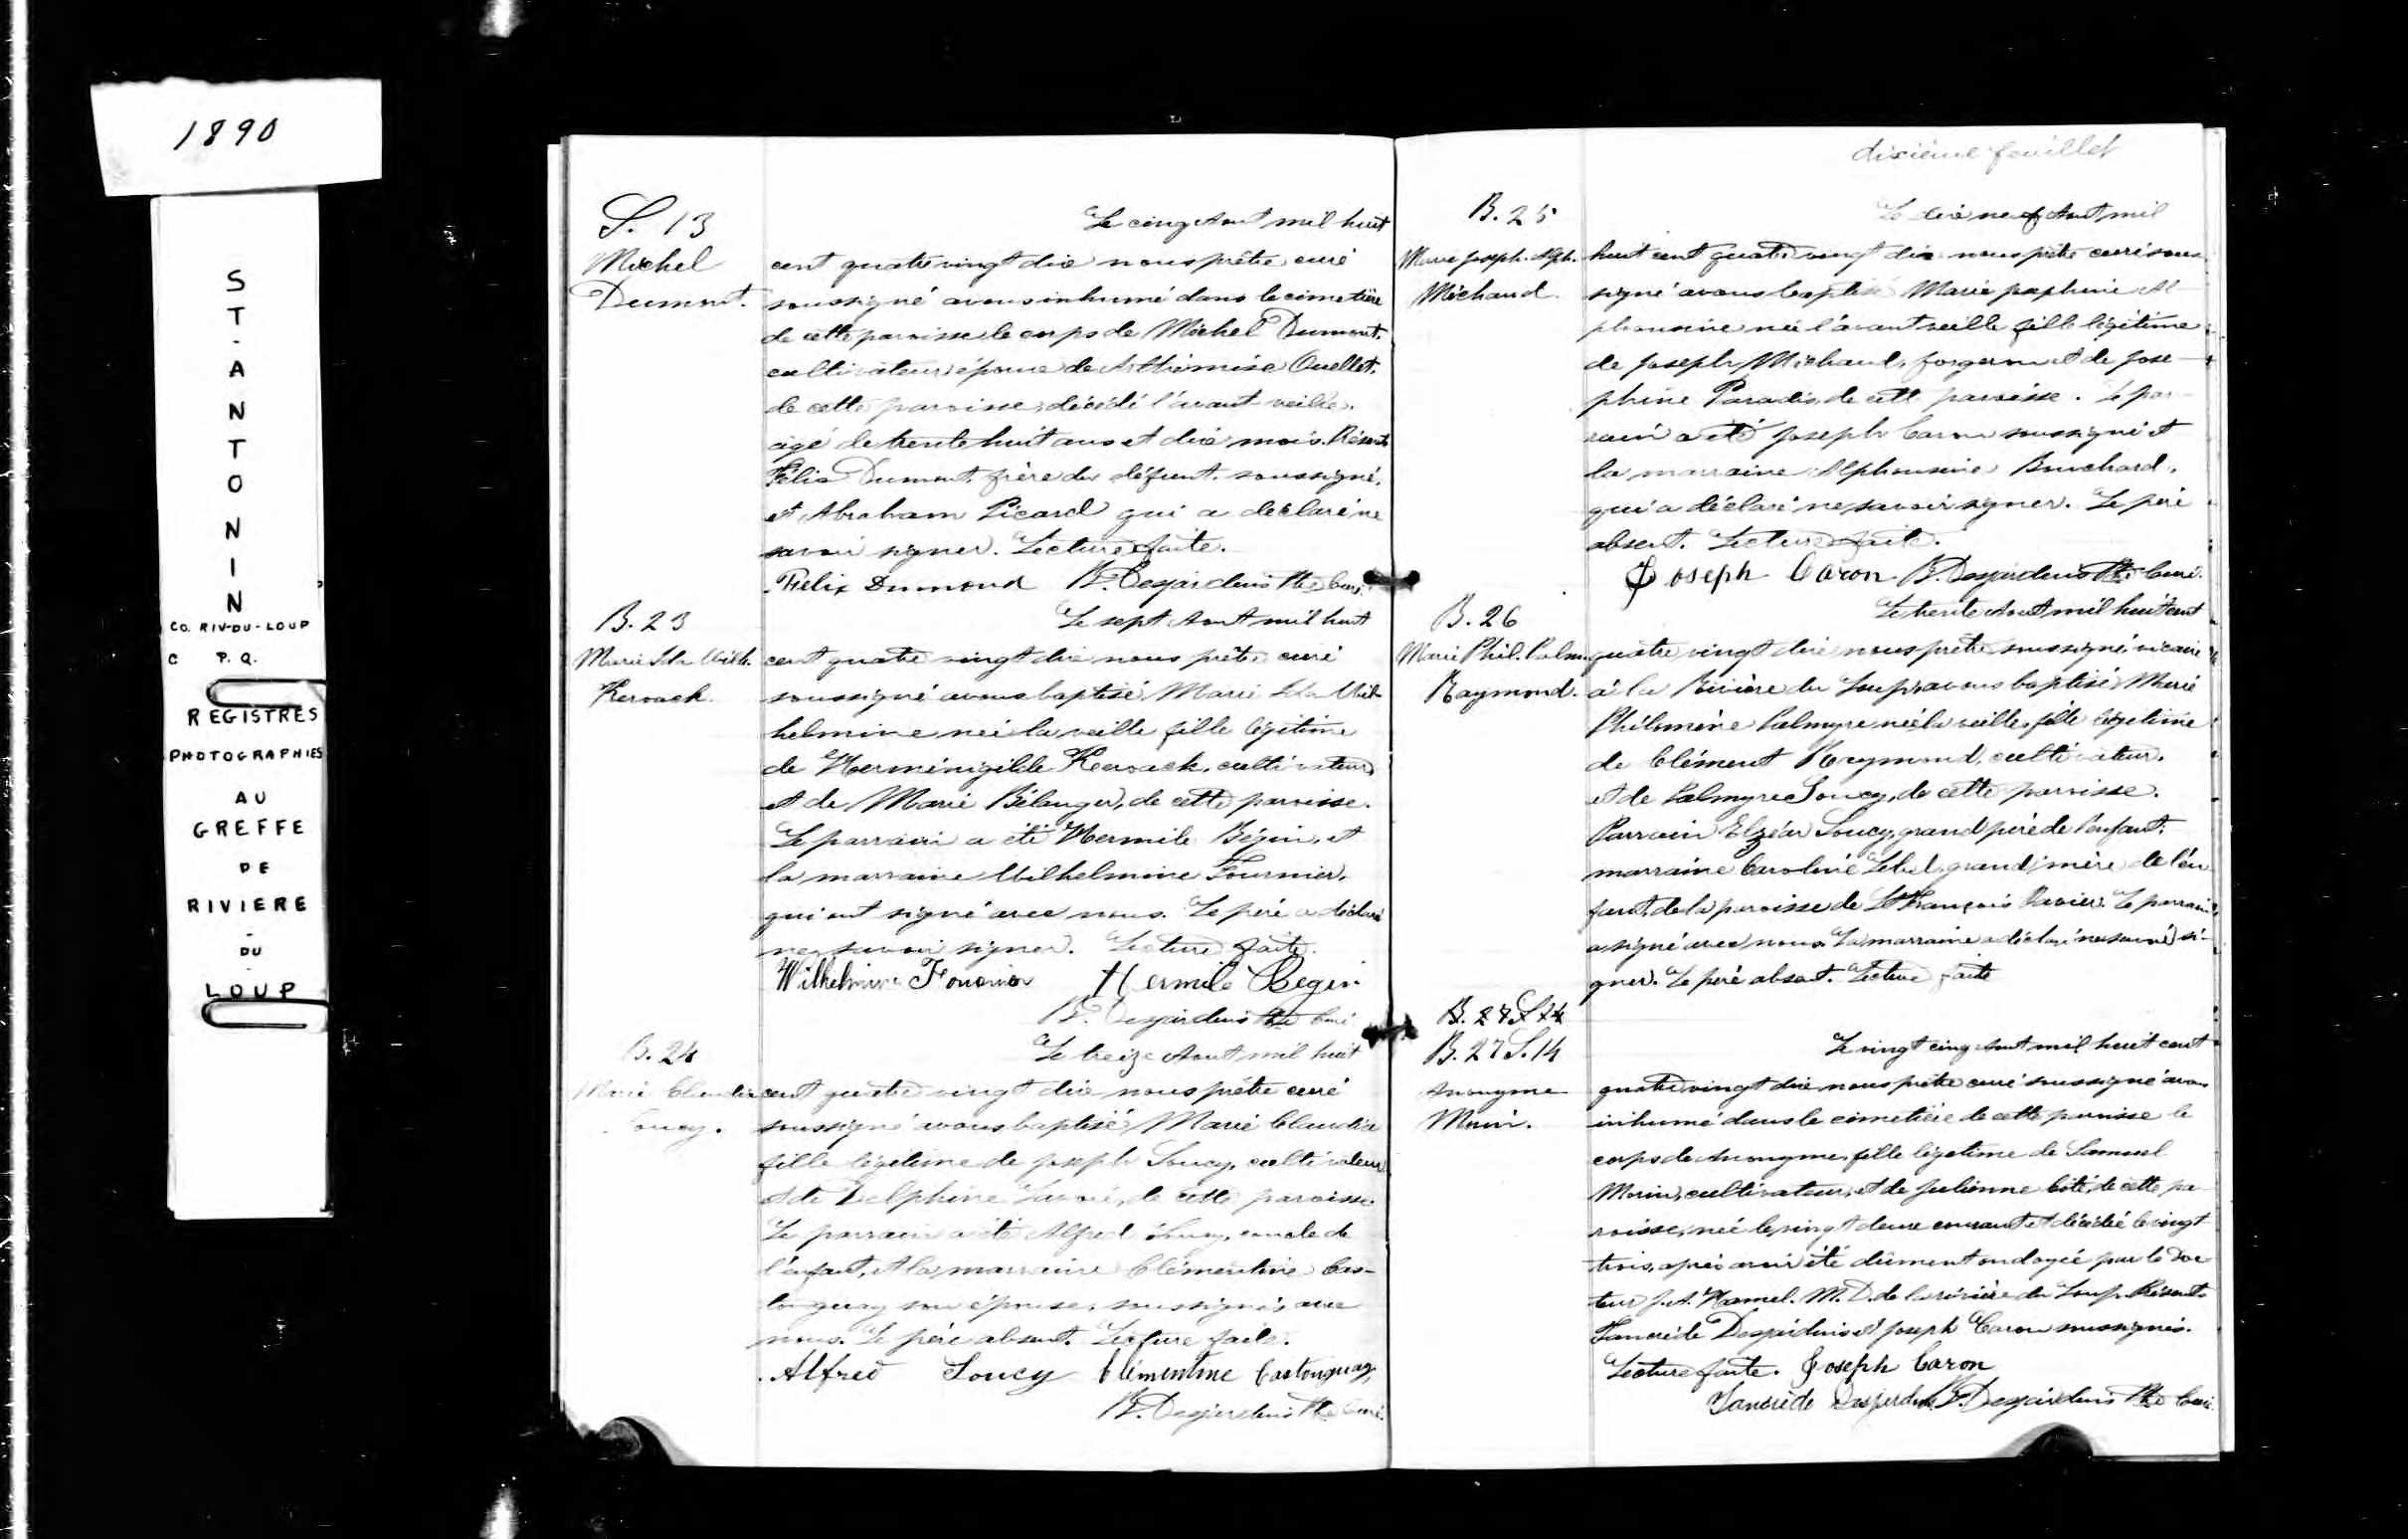 1890
S
T
-
A
N
T
O
N
I
N
CO. RIV-DU-LOUP
C P.Q.
REGISTRES
PHOTOGRAPHIES
AU
GREFFE
DE
RIVIERE
-
DU
-
LOUP
S. 13
Michel
Dumont.
Le cinq Aout mil huit
cent quatre vingt dix nous prêtre curé
soussigné avons inhumé dans le cimetière
de cette paroisse le corps de Michel Dumont,
cultivateur, époux de Arthémise Ouellet,
de cette paroisse, décédé l'avant veille,
âgé de trente huit ans et dix mois. Présents
Félix Dumont, frère du défunt, soussigné,
et Abraham Picard qui a déclaré ne
savoir signer. Lecture faite.
Felix Dumond B. Desjardins Ptre Curé
B. 23
Marie Wilh.
Kerouack.
Le sept Aout mil huit
cent quatre vingt dix nous prêtre curé
soussigné avons baptisé Marie Wil-
helmine née la veille fille légitime
de Herménigilde Kerouack, cultivateur
et de Marie Bélanger, de cette paroisse.
Le parrain a été Hermile Bégin, et
la marraine Wilhelmine Fournier,
qui ont signé avec nous. Le père a déclaré
ne savoir signer. Lecture faite.
Wilhelmine Fournier Hermile Begin
B. Desjardins Ptre Curé
B. 24
Marie Claudia
Soucy.
Le treize Aout mil huit
cent quatre vingt dix nous prêtre curé
soussigné avons baptisé Marie Claudia
fille légitime de Joseph Soucy, cultivateur
et de Delphine de cette paroisse.
Le parrain a été Alfred Soucy, oncle de
l'enfant, et la marraine Clémentine Cas-
tonguay son épouse, soussignés avec
nous. Le père absent. Lecture faite.
Alfred Soucy Clémentine Castonguay
B. Desjardins Ptre Curé.
dixième feuillet
B. 25
Marie Joseph. Alph.
Michaud.
Le dix neuf Aout mil
huit cent quatre vingt dix nous prêtre curé sous-
signé avons baptisé Marie Josephine Al-
phonsine née l'avant veille fille légitime
de Joseph Michaud, forgeron et de Jose-
phine Paradis, de cette paroisse. Le par-
rain a été Joseph Caron soussigné et
la marraine Alphonsine Bouchard,
qui a déclaré ne savoir signer. Le père
absent. Lecture faite.
Joseph Caron B. Desjardins Ptre Curé.
B. 26
Marie Phil. Palm.
Raymond.
Le trente Aout mil huit cent
quatre vingt dix nous prêtre soussigné, vicaire
à la Rivière du Loup, avons baptisé Marie
Philomène Palmyre née la veille, fille légitime
de Clément Raymond, cultivateur,
et de Palmyre Soucy, de cette paroisse.
Parrain Elzéar Soucy, grand père de l'enfant,
marraine Caroline Lebel, grand'mère de l'en-
fant, de la paroisse de St François Xavier. Le parrain
a signé avec nous. La marraine a déclaré ne savoir si-
gner. Le père absent. Lecture faite
B. 27 S. 14
B. 27 S. 14
Anonyme
Morin.
Le vingt cinq Aout mil huit cent
quatre vingt dix nous prêtre curé soussigné avons
inhumé dans le cimetière de cette paroisse le
corps de Anonyme, fille légitime de Samuel
Morin, cultivateur, et de Julienne Côté, de cette pa-
roisse, née le vingt deux courant et décédée le vingt
trois, après avoir été dûment ondoyée par le Doc-
teur J.A. Hamel. M.D. de la rivière du Loup. Présents
Tancrède Desjardins et Joseph Caron soussignés.
Lecture faite. Joseph Caron
Tancrède Desjardins B. Desjardins Ptre Curé.